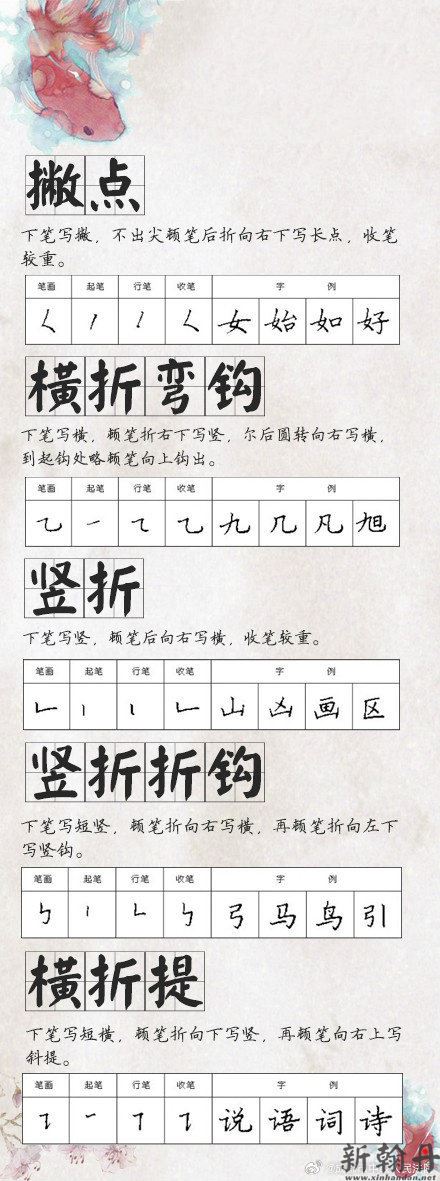 撇点
下笔写撇，不出尖顿笔后折向右下写长点，收笔
较重。
笔画 起笔 行笔 收笔 字 例
𡿨 丿 丿 𡿨 女 始 如 好
横折弯钩
下笔写横，顿笔折右下写竖，尔后圆转向右写横，
到起钩处略顿笔向上钩出。
笔画 起笔 行笔 收笔 字 例
㇈ ㇐ ㇈ ㇈ 九 几 凡 旭
竖折
下笔写竖，顿笔后向右写横，收笔较重。
笔画 起笔 行笔 收笔 字 例
㇗ 丨 丨 ㇗ 山 凶 画 区
竖折折钩
下笔写短竖，顿笔折向右写横，再顿笔折向左下
写竖钩。
笔画 起笔 行笔 收笔 字 例
㇉ 丨 ㇗ ㇉ 弓 马 鸟 引
横折提
下笔写短横，顿笔折向下写竖，再顿笔向右上写
斜提。
笔画 起笔 行笔 收笔 字 例
㇊ ㇐ ㇕ ㇊ 说 语 词 诗
新翰丹
www.xinhandan.net